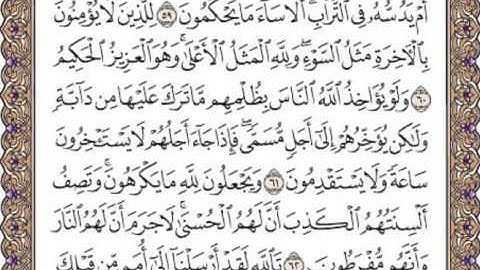 أَمْ يَدُسُّهُۥ فِى ٱلتُّرَابِ ۗ أَلَا سَآءَ مَا يَحْكُمُونَ ۝٥٩ لِلَّذِينَ لَا يُؤْمِنُونَ
بِٱلْـَٔاخِرَةِ مَثَلُ ٱلسَّوْءِ ۖ وَلِلَّهِ ٱلْمَثَلُ ٱلْأَعْلَىٰ ۚ وَهُوَ ٱلْعَزِيزُ ٱلْحَكِيمُ
۝٦٠ وَلَوْ يُؤَاخِذُ ٱللَّهُ ٱلنَّاسَ بِظُلْمِهِم مَّا تَرَكَ عَلَيْهَا مِن دَآبَّةٍ
وَلَٰكِن يُؤَخِّرُهُمْ إِلَىٰٓ أَجَلٍ مُّسَمًّى ۖ فَإِذَا جَآءَ أَجَلُهُمْ لَا يَسْتَـْٔخِرُونَ
سَاعَةً ۖ وَلَا يَسْتَقْدِمُونَ ۝٦١ وَيَجْعَلُونَ لِلَّهِ مَا يَكْرَهُونَ ۚ وَتَصِفُ
أَلْسِنَتُهُمُ ٱلْكَذِبَ أَنَّ لَهُمُ ٱلْحُسْنَىٰ ۖ لَا جَرَمَ أَنَّ لَهُمُ ٱلنَّارَ
وَأَنَّهُم مُّفْرَطُونَ ۝٦٢ تَٱللَّهِ لَقَدْ أَرْسَلْنَآ إِلَىٰٓ أُمَمٍ مِّن قَبْلِكَ